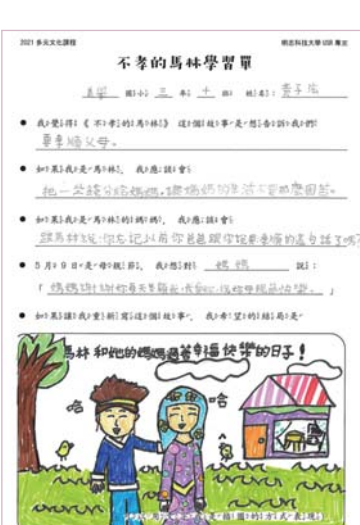 2021 多元文化課程 明志科技大學 USR 專案
不孝的馬林學習單
國小 三 年 十 班 姓名：黃子
● 我覺得《不孝的馬林》這個故事是想告訴我們：
要孝順父母。
● 如果我是馬林，我應該會
把一些錢分給媽媽，讓媽媽的生活不要那麼困苦。
● 如果我是馬林的媽媽，我應該會
跟馬林說：你忘記以前你爸爸跟你說要孝順的這句話了嗎？
● 5月9日是母親節，我想對 媽媽 說：
「媽媽謝謝你每天照顧我，祝妳母親節快樂。」
● 如果讓我重新寫這個故事，我希望的結局是
馬林和他的媽媽過著幸福快樂的日子！
哈 哈